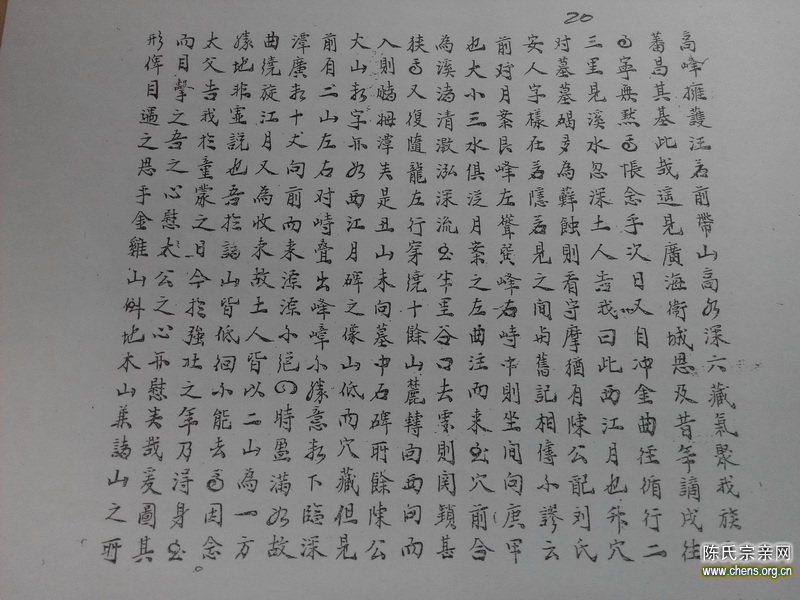 20
高峰擁護注若前帶山高水深穴藏氣聚我族
蕃昌其基此哉遠見廣海衛城思及昔年謫戍往
而寧無愁而悵念乎次日又自冲金曲徑循行二
三里見溪水忽深土人告我曰此西江月也穴
对墓墓碣多為蘚蝕則看守摩猶有陳公配刘氏
安人字樣在若隱若見之間与舊記相傳不謬云
前对月案艮峰左聳巽峰右峙中則坐間向庚甲
也大小三水俱泛月案之左曲注而来出穴前合
為溪清澈泓深流出半里谷口去處則関鎖甚
狭而又復隨龍左行穿繞十餘山麓轉向西向而
入則拇潭矣是丑山未向墓中石碑所餘陳公
大山数字亦如西江月碑之像山低而穴藏但見
前有二山左右对峙叠出峰嶂不勝意数下臨深
潭廣数十丈向前而来源源不絕四時盈满如故
曲繞旋江月又為收束故土人皆以二山為一方
勝地非虛說也吾於諸山皆低徊不能去而因念
太父告我於童蒙之日今於強壮之年乃得身出
而目擊之吾之心慰太公之心亦慰矣哉爰圖其
形俾目遇之思乎金雞山斜地木山諸山之所
陈氏宗亲网
www.chens.org.cn